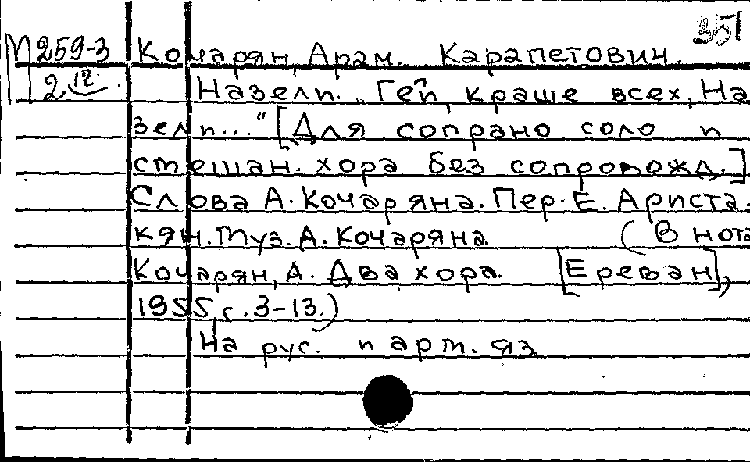 351
М 259-3 Кочарян, Арам. Карапетович.
2. 12. Назели. „Гей, краше всех, На
зели..." [Для сопрано соло и
смешан. хора без сопровожд.]
Слова А. Кочаряна. Пер. Е. Ариста-
кян. Муз. А. Кочаряна (В нота
Кочарян, А. Два хора. [Ереван],
1955, с. 3-13.)
На рус. и арм. яз.